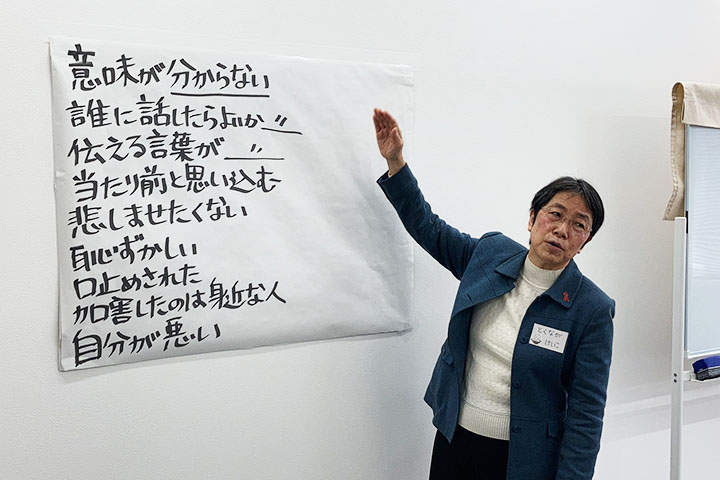 意味が分からない
誰に話したらよいか 〃
伝える言葉が 〃
当たり前と思い込む
悲しませたくない
恥ずかしい
口止めされた
加害したのは身近な人
自分が悪い
とくなが
けいこ